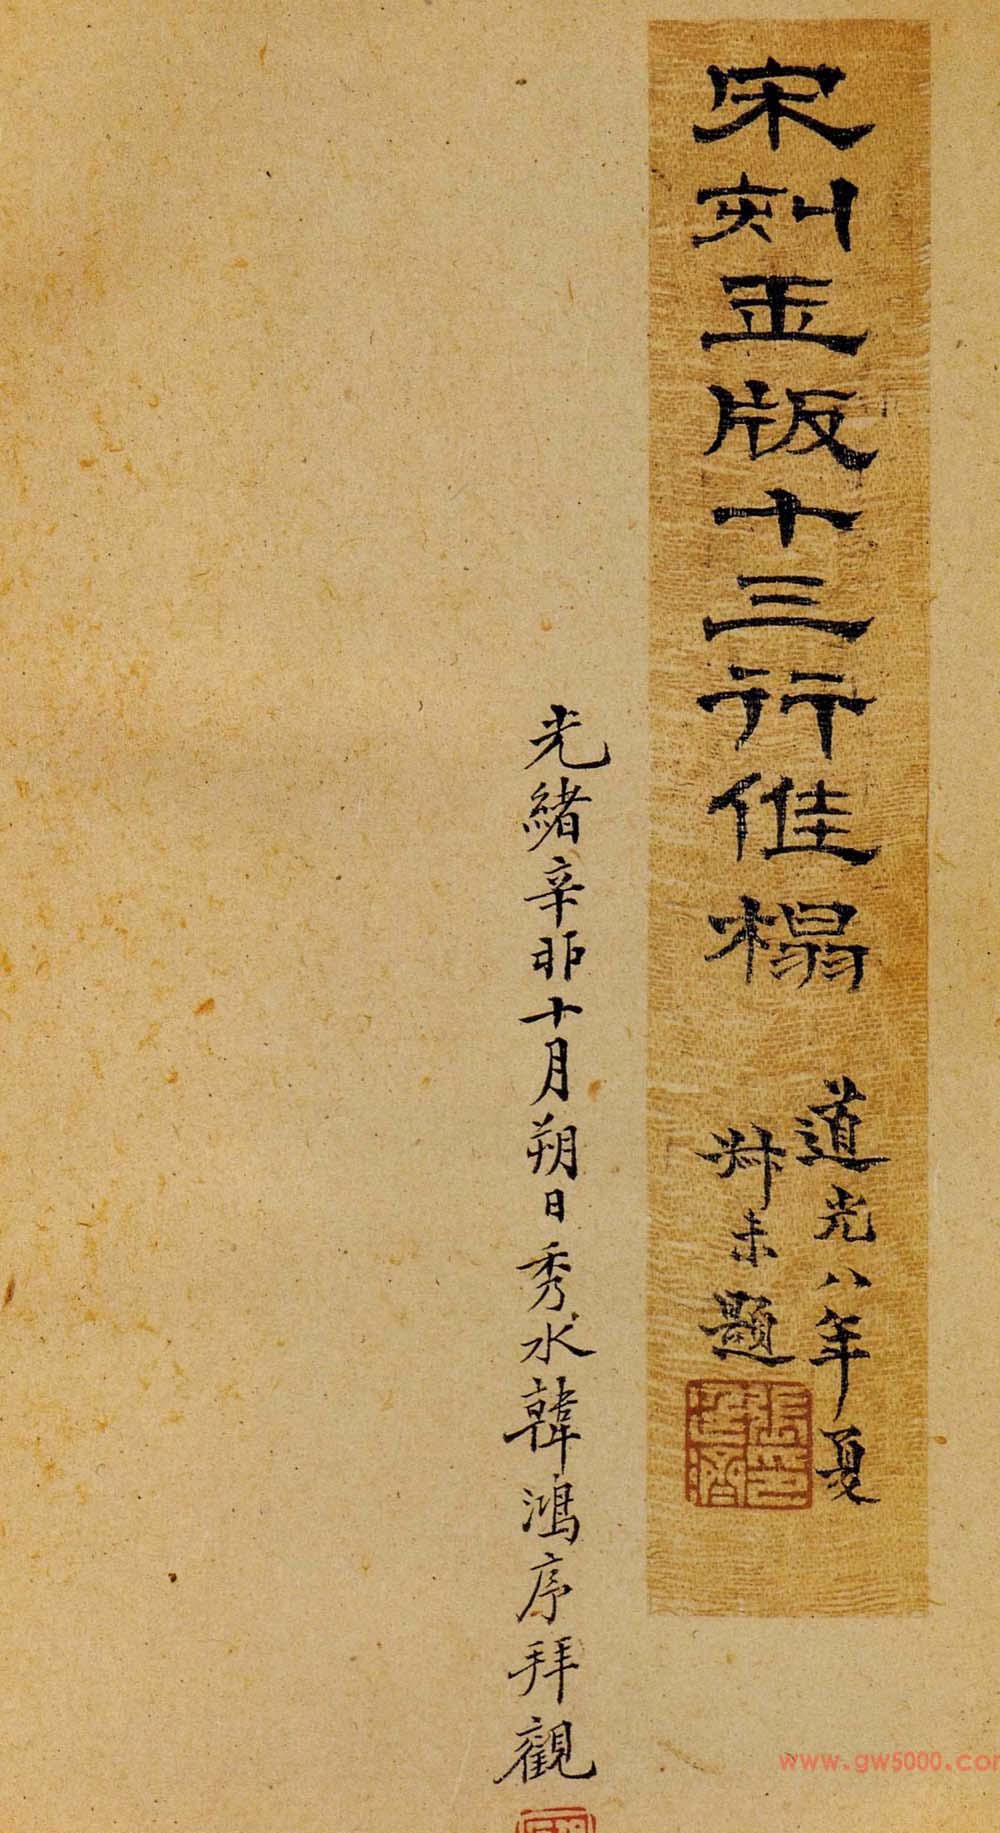 宋刻玉版十三行佳榻
道光八年夏
叔未題
張廷濟印
光緒辛卯十月朔日秀水韓鴻序拜觀
www.gw5000.com